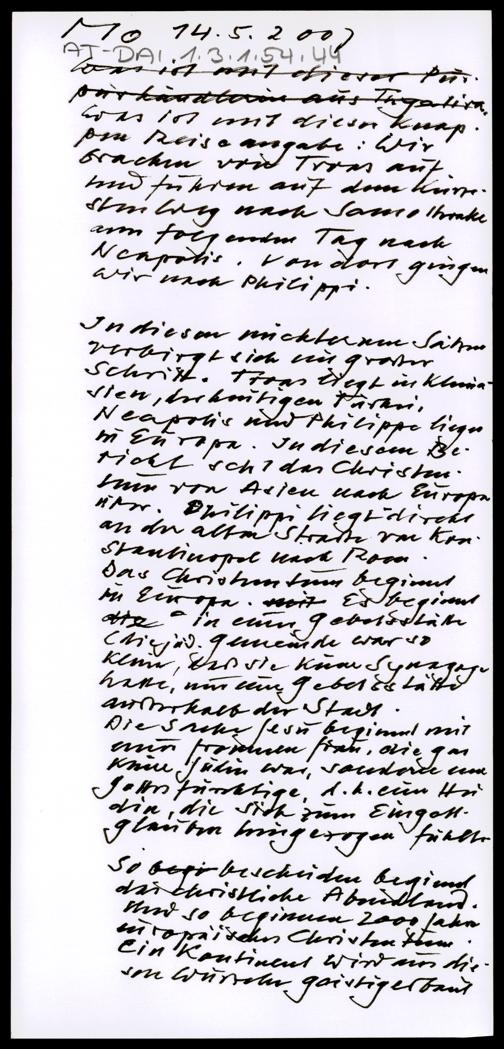 Mo 14.5.2007
AT-DAI.1.3.1.54.44
Was ist mit dieser Pur-
purhändlerin aus Tyatira.
Was ist mit dieser knap-
pen Reiseangabe: Wir
brachen von Troas auf
und fuhren auf dem kürze-
sten Weg nach Samothrake
am folgenden Tag nach
Neapolis. Von dort gingen
wir nach Philippi.
In diesen nüchternen Sätzen
verbirgt sich ein großer
Schritt. Troas liegt in Kleina-
sien, der heutigen Türkei,
Neapolis und Philippi liegen
in Europa. In diesem Be-
richt setzt das Christen-
tum von Asien nach Europa
über. Philippi liegt direkt
an der alten Straße von Kon-
stantinopel nach Rom.
Das Christentum beginnt
in Europa. mit Es beginnt
die in einer Gebetsstätte
(die jüd. Gemeinde war so
klein, daß sie keine Synagoge
hatte, nur eine Gebetsstätte
außerhalb der Stadt.
Die Sache Jesu beginnt mit
einer frommen Frau, die gar
keine Jüdin war, sondern eine
Gottesfürchtige, d.h. eine Hei-
din, die sich zum Eingott-
glauben hingezogen fühlte
So begi bescheiden beginnt
das christliche Abendland.
Und so beginnen 2000 Jahre
europäisches Christentum.
Ein Kontinent wird aus die-
sen Wurzeln geistig erbaut